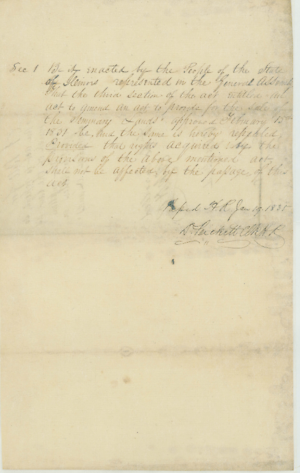 Sec 1 Be it enacted by the People of the State
of Illinois represented in the General Assembly
That the third section of the act entitled "an
act to amend an act to provide for the sale of
the Seminary 
1831 be and the same is hereby repealed
Provided the rights acquired under the
provisions of the above mentioned act
shall not be affected by the passage of this
act
Passed H. R. Jan 19 1835
D. Prickett Clk H. R.